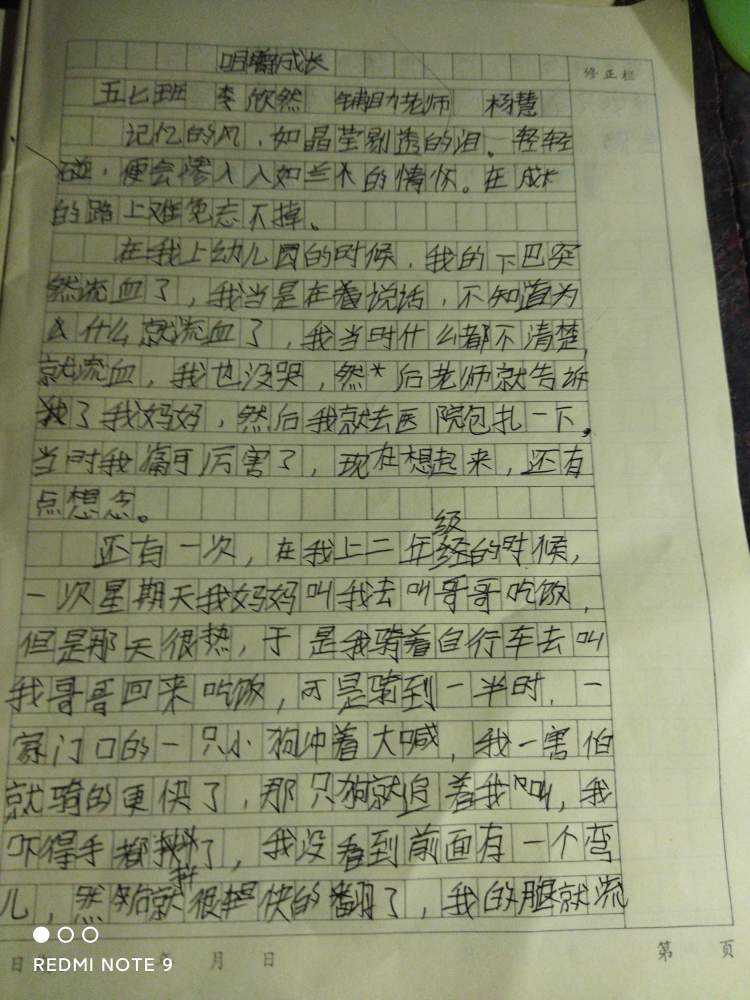 咀嚼成长
修正栏
五七班 李欣然 辅助老师 杨慧
记忆的风，如晶莹剔透的泪、轻轻
碰，便会渗入人如兰木的情怀。在成长
的路上难免忘不掉、
在我上幼儿园的时候，我的下巴突
然流血了，我当是在着说话，不知道为
什么就流血了，我当时什么都不清楚，
就流血，我也没哭，然后老师就告诉
了我妈妈，然后我就去医院包扎一下，
当时我痛可厉害了，现在想起来，还有
点想念。
级
还有一次，在我上二年的时候，
一次星期天我妈妈叫我去叫哥哥吃饭，
但是那天很热，于是我骑着自行车去叫
我哥哥回来吃饭，可是骑到一半时，一
家门口的一只小狗冲着大喊，我一害怕
就骑的更快了，那只狗就追着我叫，我
吓得手都抖了，我没看到前面有一个弯
儿，然后就很快的翻了，我的腿就流
日 年 月 日
第 页
REDMI NOTE 9